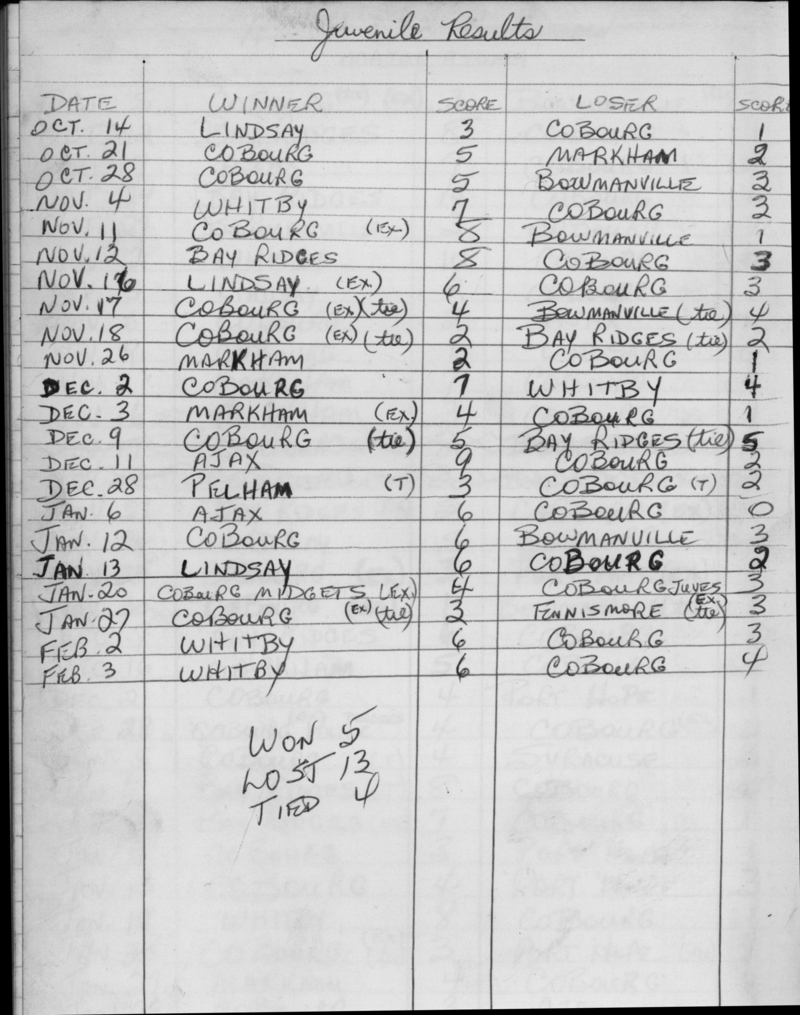 Juvenile Results
DATE WINNER SCORE LOSER SCORE
OCT. 14 LINDSAY 3 COBOURG 1
OCT. 21 COBOURG 5 MARKHAM 2
OCT. 28 COBOURG 5 BOWMANVILLE 3
NOV. 4 WHITBY 7 COBOURG 3
NOV. 11 COBOURG (EX.) 8 BOWMANVILLE 1
NOV. 12 BAY RIDGES 8 COBOURG 3
NOV. 16 LINDSAY (EX.) 6 COBOURG 3
NOV. 17 COBOURG (EX)(tie) 4 BOWMANVILLE (tie) 4
NOV. 18 COBOURG (EX)(tie) 2 BAY RIDGES (tie) 2
NOV. 26 MARKHAM 2 COBOURG 1
DEC. 2 COBOURG 7 WHITBY 4
DEC. 3 MARKHAM (EX.) 4 COBOURG 1
DEC. 9 COBOURG (tie) 5 BAY RIDGES (tie) 5
DEC. 11 AJAX 9 COBOURG 2
DEC. 28 PELHAM (T) 3 COBOURG (T) 2
JAN. 6 AJAX 6 COBOURG 0
JAN. 12 COBOURG 6 BOWMANVILLE 3
JAN. 13 LINDSAY 6 COBOURG 2
JAN. 20 COBOURG MIDGETS (EX.) 4 COBOURG JUVES 3
JAN. 27 COBOURG (EX)(tie) 3 ENNISMORE (EX.)(tie) 3
FEB. 2 WHITBY 6 COBOURG 3
FEB. 3 WHITBY 6 COBOURG 4
WON 5
LOST 13
TIED 4